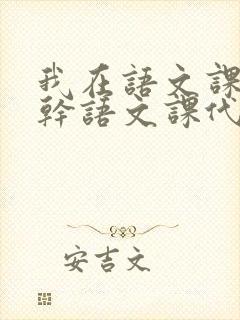 我在語文課
幹語文課代
安吉文